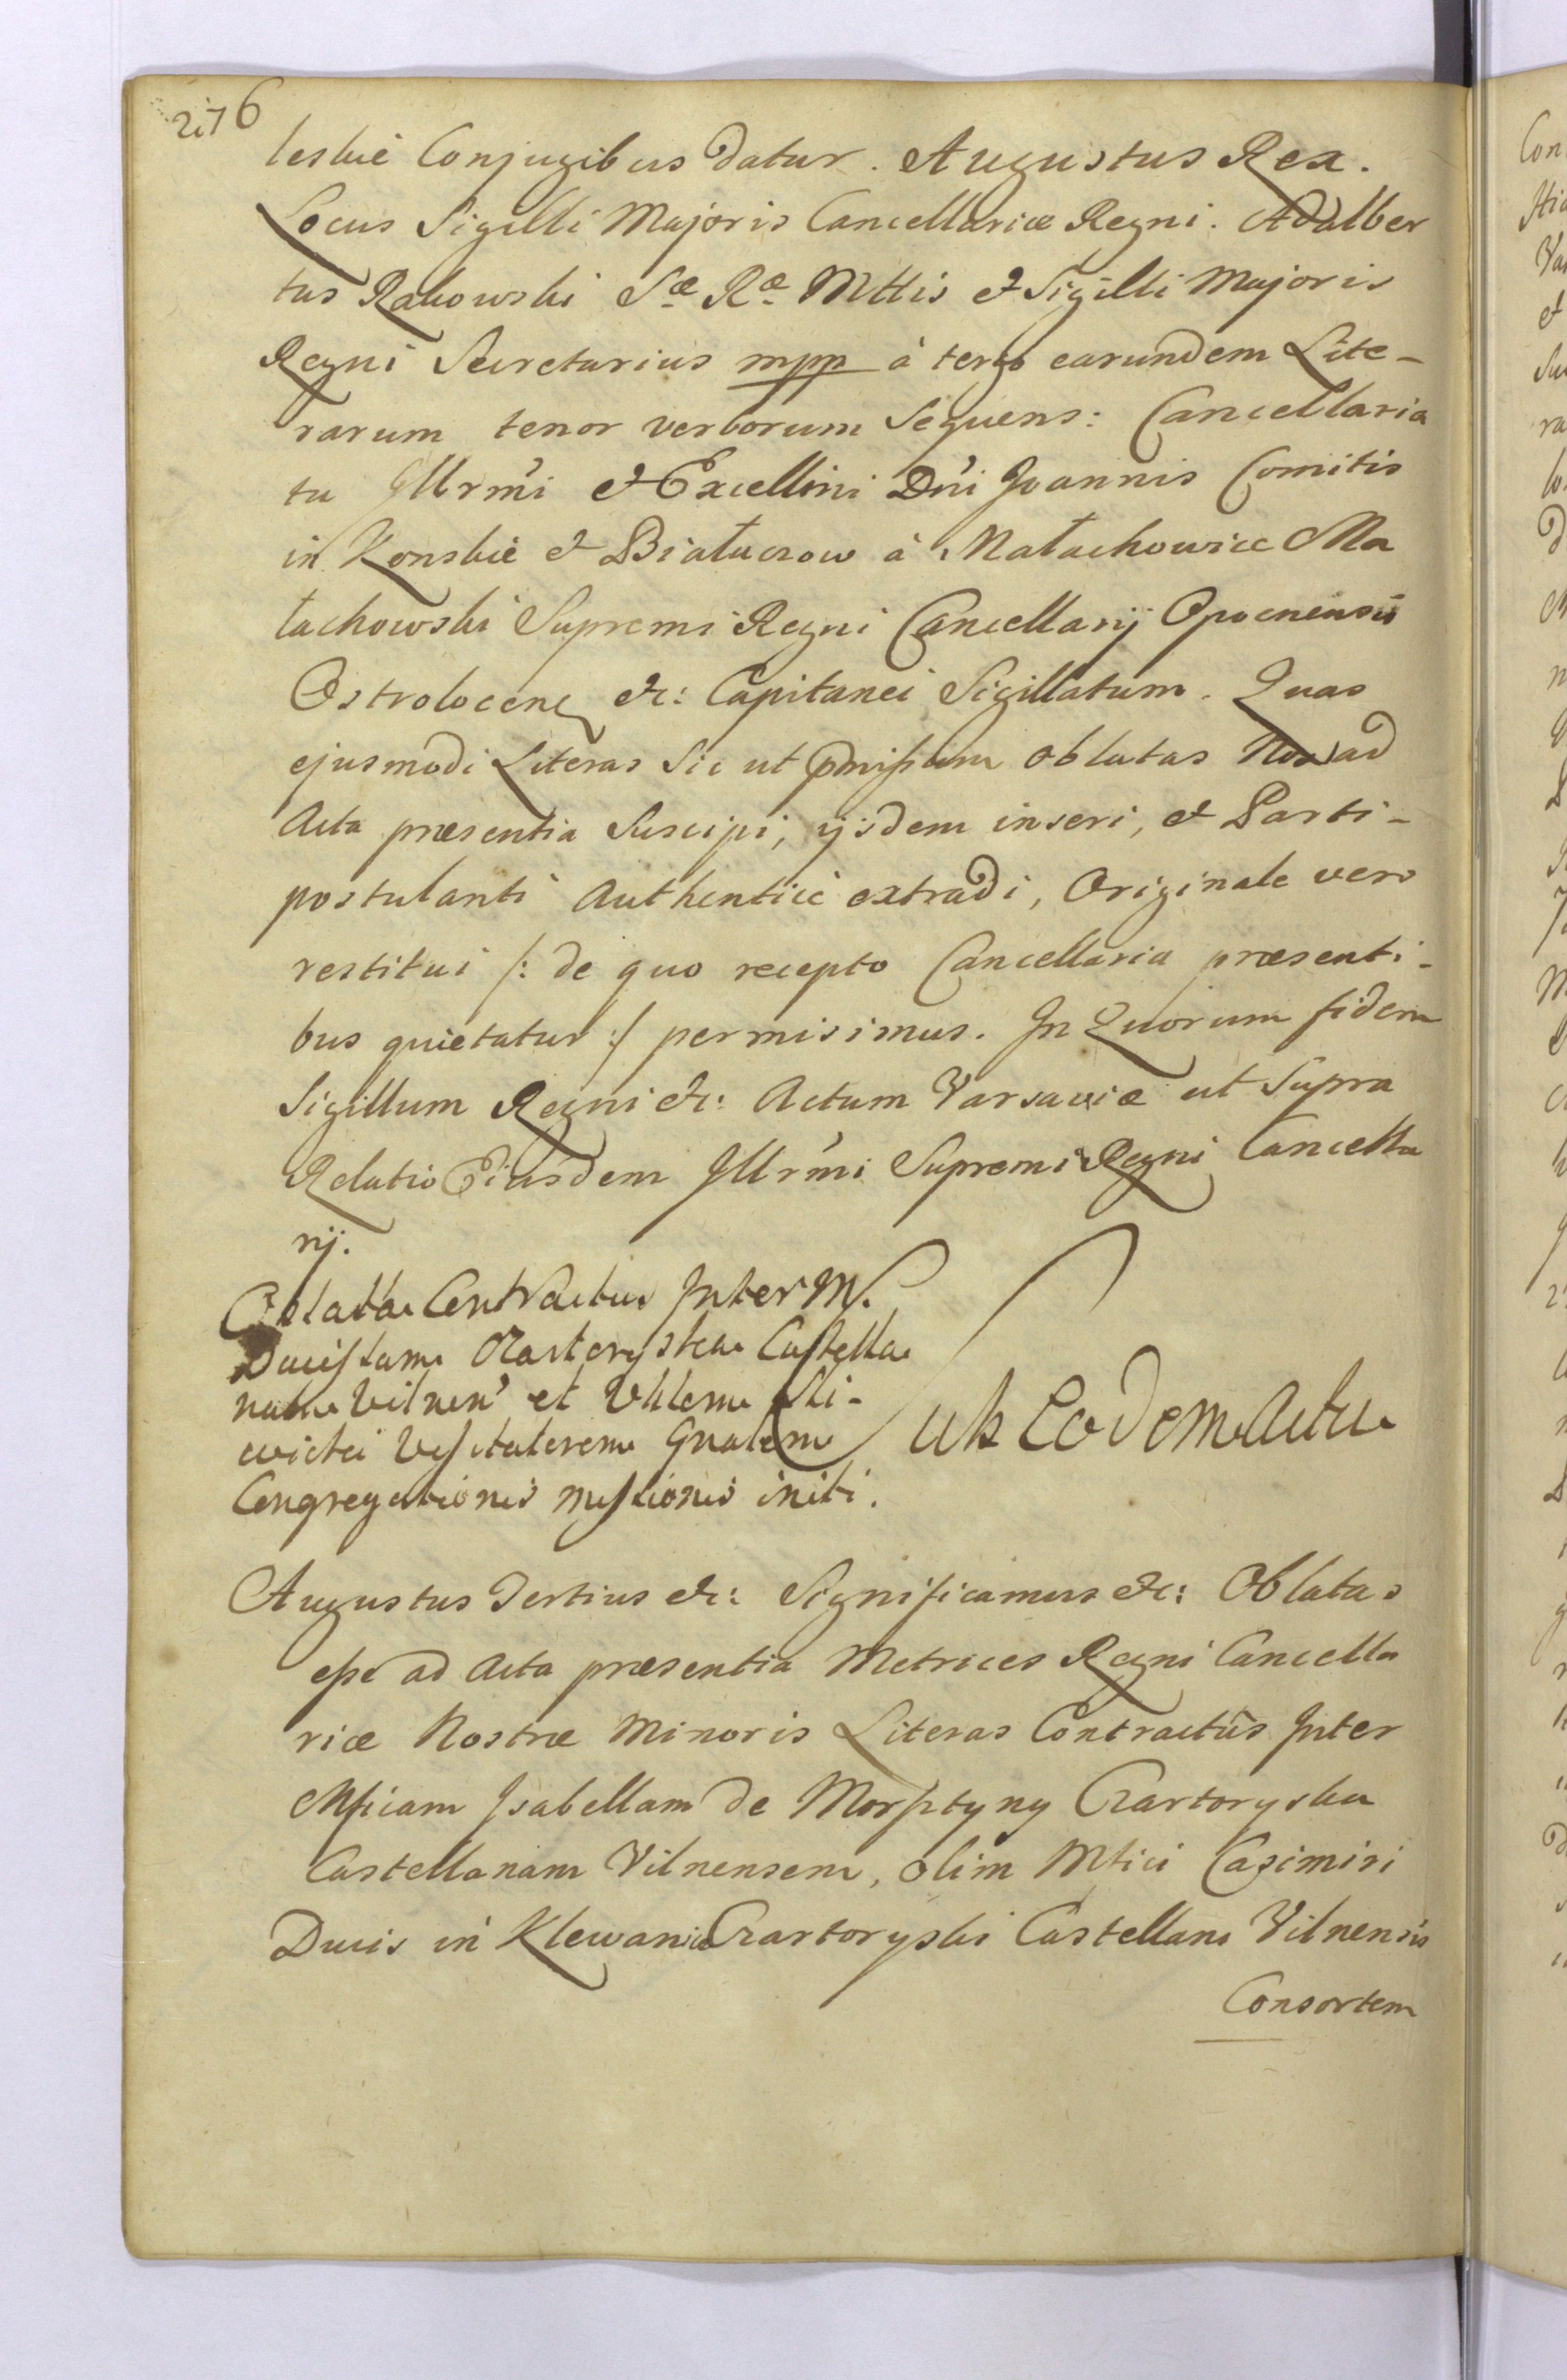 276
leskie Conjugibus datur. Augustus Rex.
Locus Sigilli Majoris Cancellariæ Regni. Adalber
tus Rakowski Sæ Ræ Mttis et Sigilli Majoris
Regni Secretarius mpp à tergo earundem Lite-
rarum tenor verborum Sequens: Cancellaria
tu Jllrm̃i et Excellm̃i Dñi Joannis Comitis
in Konskie et Białaczow à Małachowice Ma
łachowski Supremi Regni Cancellarij Opocnensis
Ostrolocen etc: Capitanei Sigillatum. Quas
ejusmodi Literas Sic ut pmissum oblatas Nos ad
Acta præsentia Suscipi, ijsdem inseri, et Parti-
postulanti Authenticè extradi, Originale vero
restitui /: de quo recepto Cancellaria præsenti-
bus quietatur :/ permisimus. In Quorum fidem
Sigillum Regni etc: Actum Varsaviæ ut Supra
Relatio Eiusdem Jllrm̃i Supremi Regni Cancella
rij.
Oblata Contractus Inter M.
Ducissam Czartoryska Castella
nam Vilnen' et
Visitatorem Gnalem
Congregationis missionis initi.
ut Eodem Actu
Augustus Tertius etc: Significamus etc: Oblatas
esse ad Acta præsentia Metrices Regni Cancella
riæ Nostræ Minoris Literas Contractûs Inter
Mficam Isabellam de Morsztyny Czartoryska
Castellanam Vilnensem, olim Mfici Casimiri
Ducis in Klewanie Czartoryski Castellani Vilnensis
Consortem